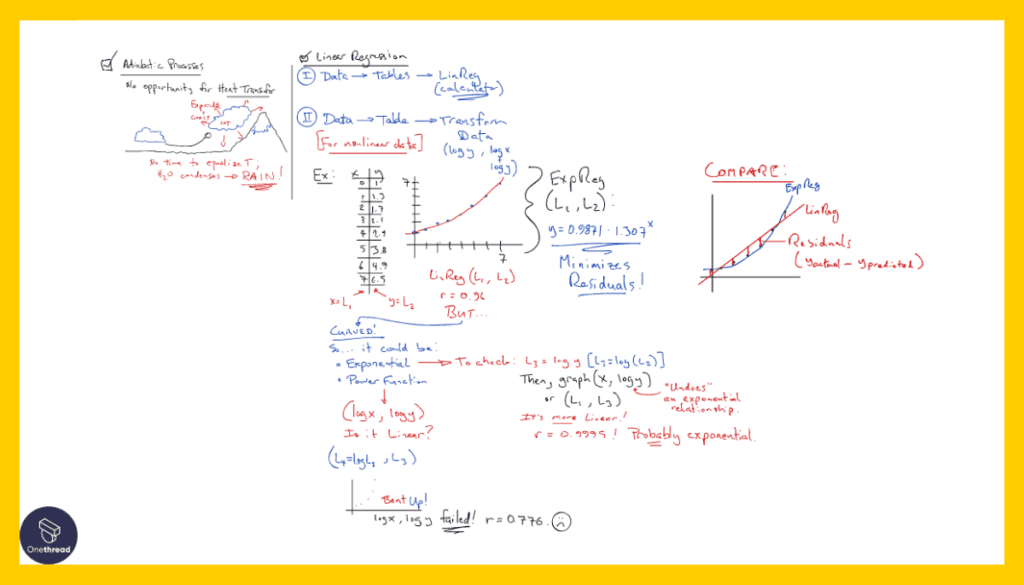 Adiabatic Processes
No opportunity for Heat Transfer
Expands
Cools
No time to equalize T;
H2O condenses → RAIN!
Linear Regression
I Data → Tables → LinReg
(calculator)
II Data → Table → Transform
Data
[For nonlinear data]
(log y, log x
log y)
Ex:
x y
0 1
1 1.3
2 1.7
3 2.1
4 2.9
5 3.8
6 4.9
7 6.5
x=L1 y=L2
7
7
LinReg (L1, L2)
r = 0.96
BUT...
ExpReg
(L1, L2):
y = 0.9871 · 1.307^x
Minimizes
Residuals!
COMPARE:
ExpReg
LinReg
Residuals
(yactual − ypredicted)
CURVED!
So... it could be:
• Exponential → To check: L3 = log y [L3=log(L2)]
• Power Function
Then, graph (x, log y)
or (L1, L3)
"Undoes"
an exponential
relationship.
It's more Linear!
r = 0.9995! Probably exponential.
(log x, log y)
Is it Linear?
(L4=log L1, L3)
Bent Up!
log x, log y failed! r = 0.776.
Onethread